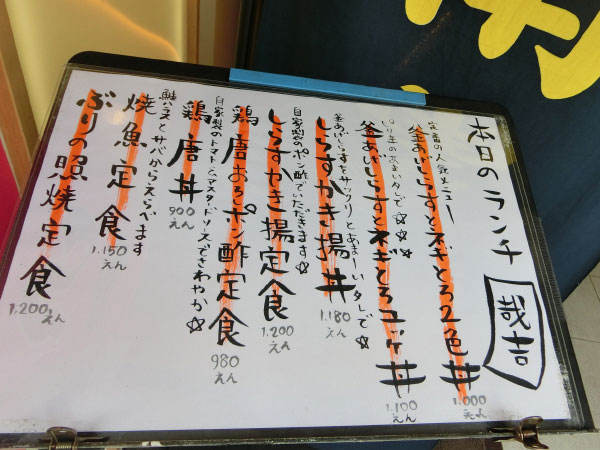 本日のランチ
哉吉
当店の人気メニュー
釜あげしらすとネギとろ2色丼
1.000えん
釜あげしらすとネギとろユッケ丼
1.100えん
釜あげしらすをサックリとあまーいタレで☆
しらすかき揚丼
1.180えん
自家製のポン酢でいただきます☆
しらすかき揚定食
1.200えん
鶏唐おろしポン酢定食
980えん
自家製のトマトとマスタードソースでさわやか☆
鶏唐丼
900えん
鮭ハラスとサバからえらべます
焼魚定食
1.150えん
ぶりの照焼定食
1.200えん